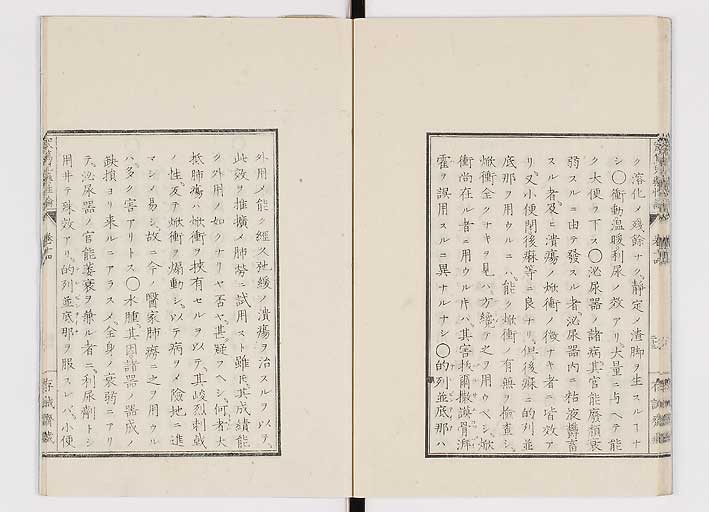 ク溶化メ残餘ナク、靜定メ渣脚ヲ生スルヿナ
シ〇衝動溫暖利尿ノ效アリ、大量ニ与ヘテ能
ク大便ヲ下ス〇泌尿器ノ諸病其官能麼頽衰
弱スルニ由テ發スル者、泌尿器内ニ粘液欝畜
スル者、及ヒ潰瘍ノ焮衝ノ徴ナキ者ニ皆效ア
リ、又小便閉後痳等ニ良ナリ、但後痳ニ的列並
底那ヲ用ウルニハ、能ク焮衝ノ有無ヲ撿査シ、
焮衝全クナキヲ見ハ方纔テ之ヲ用ウヘシ、焮
衝尚在ル者ニ用ウル𪜈ハ、其害拔爾撒謨骨湃
霍ヲ誤用スルニ異ナルナシ〇的列並底那ハ
外用メ能ク經久弛緩ノ潰瘍ヲ治スルヲ以テ、
此效ヲ推擴メ肺勞ニ試用スト雖𪜈其成績能
ク外用ノ如クナリヤ否ヤ、甚疑フヘシ、何者大
抵肺瘍ハ焮衝ヲ挾有セルヲ以テ、其峻烈刺戟
ノ性反テ焮衝ヲ煽動シ、以テ病ヲメ險地ニ進
マシメ易シ、故ニ今ノ醫家肺癆ニ之ヲ用ウル
ハ、多ク害アリトス〇水腫其因諸器ノ器成ノ
缺損ヨリ來ルニアラスメ、全身ノ衰弱ニアリ
テ、泌尿器ノ官能萎衰ヲ兼ル者ニ、利尿劑トシ
用井テ殊效アリ、的列並底那ヲ服スレバ、小便
存誠齋藏